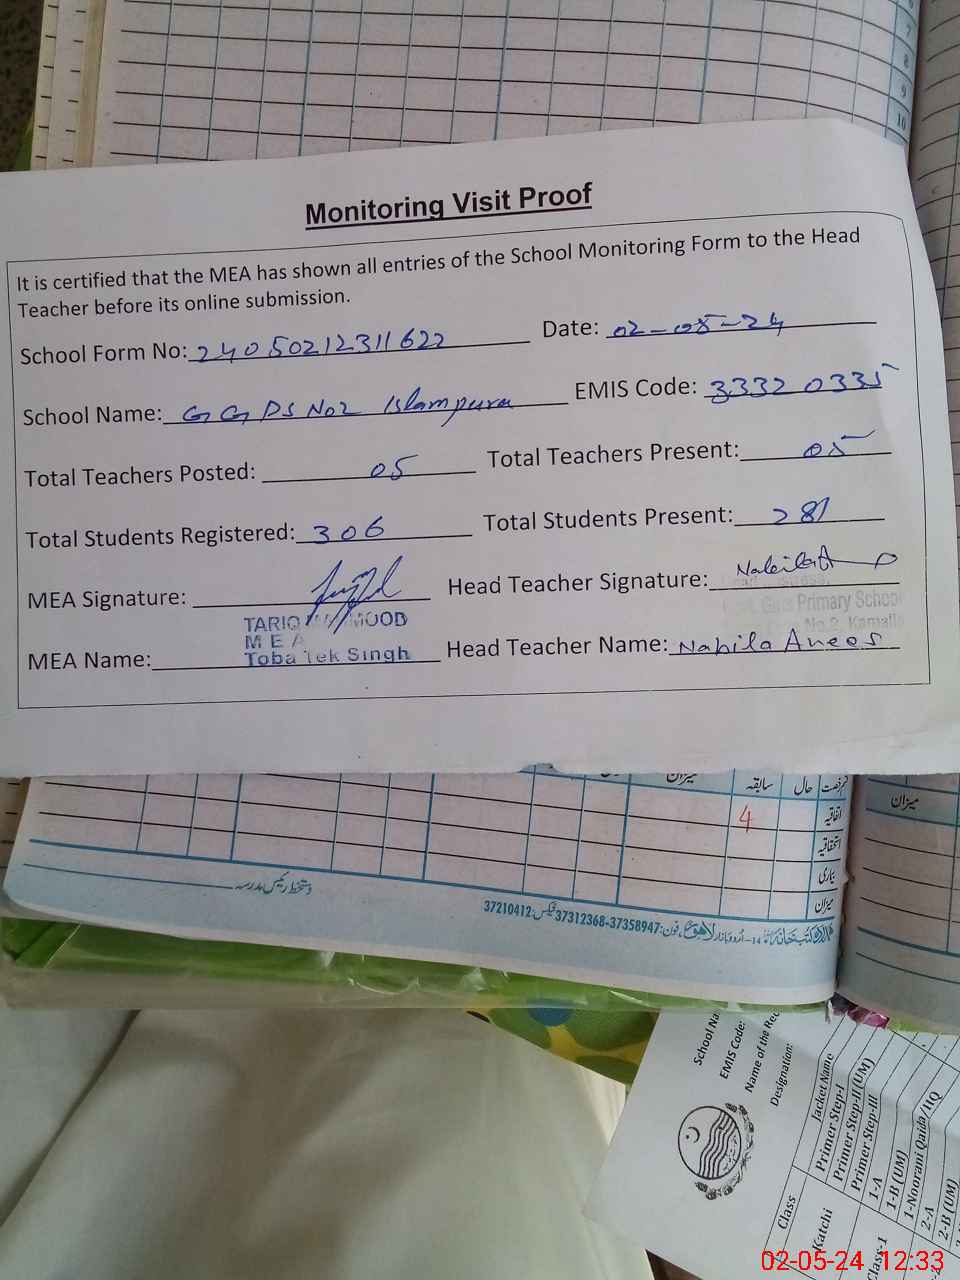 7
8
9
10
Monitoring Visit Proof
It is certified that the MEA has shown all entries of the School Monitoring Form to the Head
Teacher before its online submission.
School Form No: 24050212311622 Date: 02-05-24
School Name: GGPS No2 Islampura EMIS Code: 33320335
Total Teachers Posted: 05 Total Teachers Present: 05
Total Students Registered: 306 Total Students Present: 281
MEA Signature: Head Teacher Signature: Nabila A
Primary School
No.2, Kamalia
TARIQ MAHMOOD
MEA
Toba Tek Singh
MEA Name: Head Teacher Name: Nabila Anees
میزان سابقہ حال
میزان
4
اتفاقیہ
استحقاقیہ
بیماری
میزان
دستخط رئیس مدرسہ
14-اردو بازار لاہور، فون: 37312368-37358947 فیکس: 37210412
School Na
EMIS Code:
Name of the Rec
Designation:
Class
Jacket Name
Katchi
Primer Step-I
Primer Step-II (UM)
Primer Step-III
Class-1
1-A
1-B (UM)
1-Noorani Qaida/IIQ
2-A
2-B (UM)
02-05-24 12:33